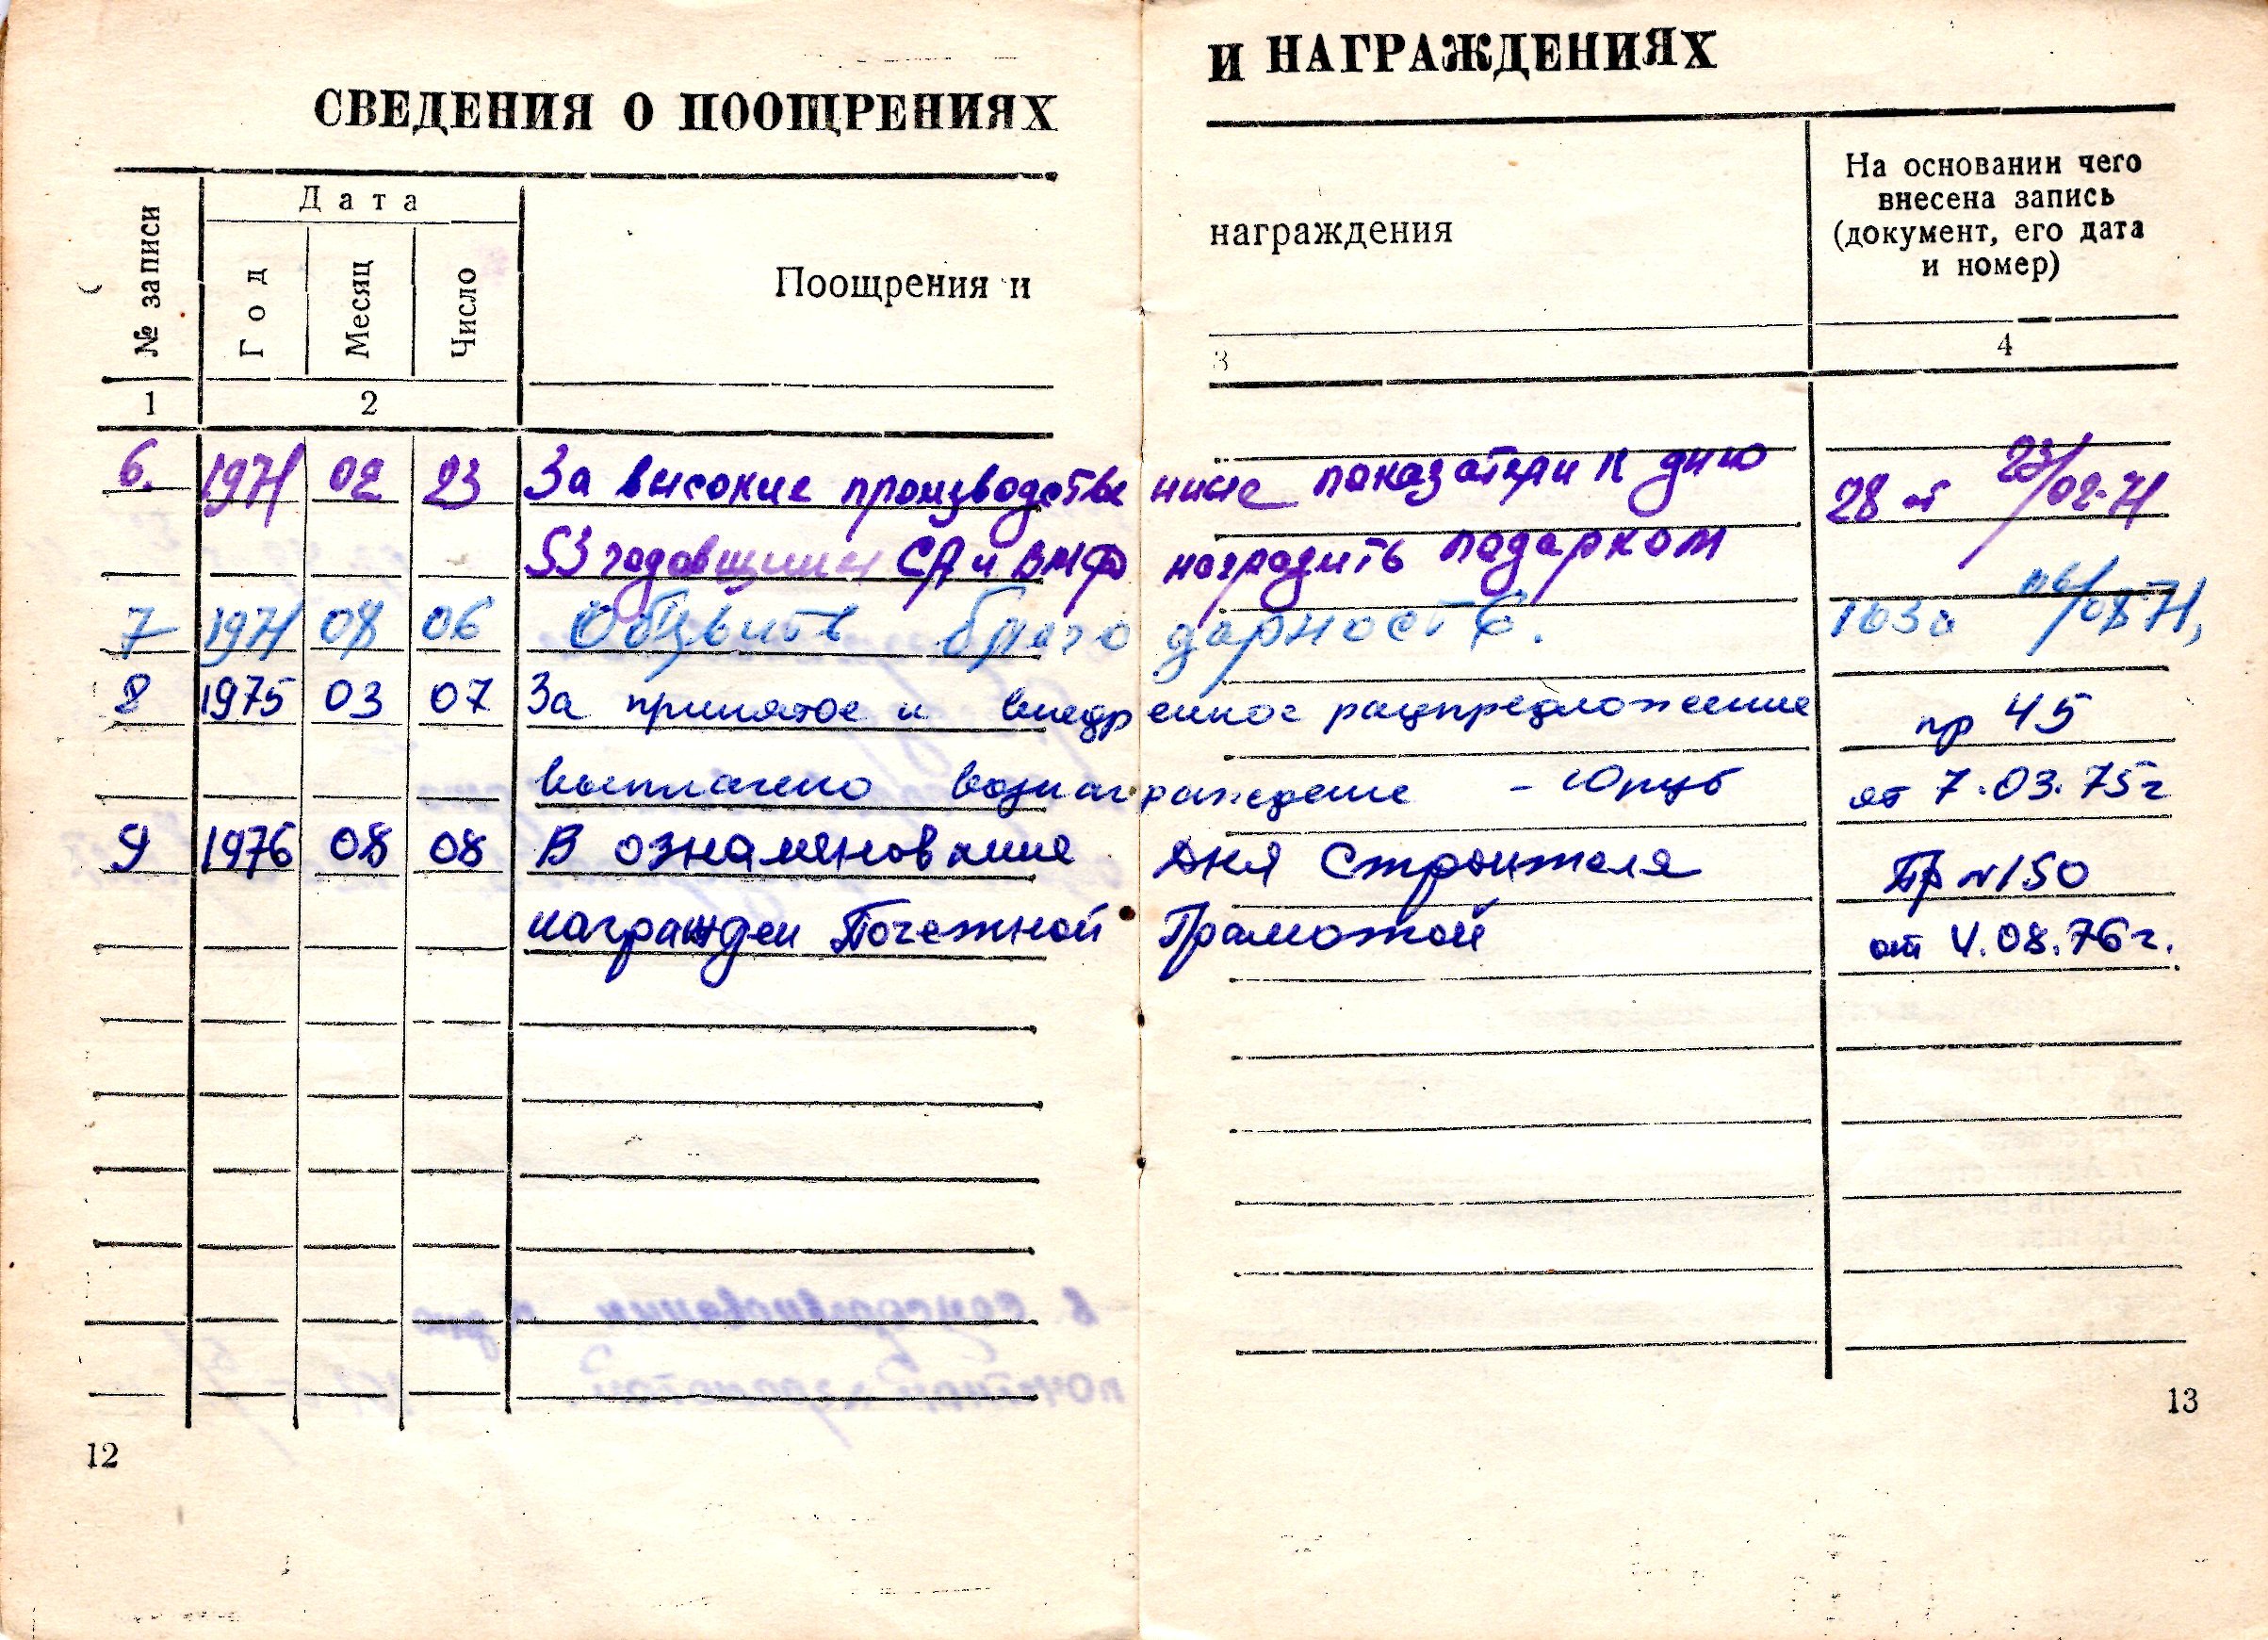 СВЕДЕНИЯ О ПООЩРЕНИЯХ
И НАГРАЖДЕНИЯХ
№ записи
Дата
Год
Месяц
Число
Поощрения и
награждения
На основании чего
внесена запись
(документ, его дата
и номер)
1 2 3 4
6. 1971 02 23 За высокие производстве нные показатели к дню 28 от 23/02-71
53 годовщины СА и ВМФ наградить подарком
7 1971 08 06 Объявить благо дарность. 06/08-71,
8 1975 03 07 За принятое и внедр енное рацпредложение пр 45
выплачено вознаг раждение - 10руб от 7.03.75г
9 1976 08 08 В ознаменование Дня Строителя Пр №150
награжден Почетной Грамотой от 4.08.76г.
12
13